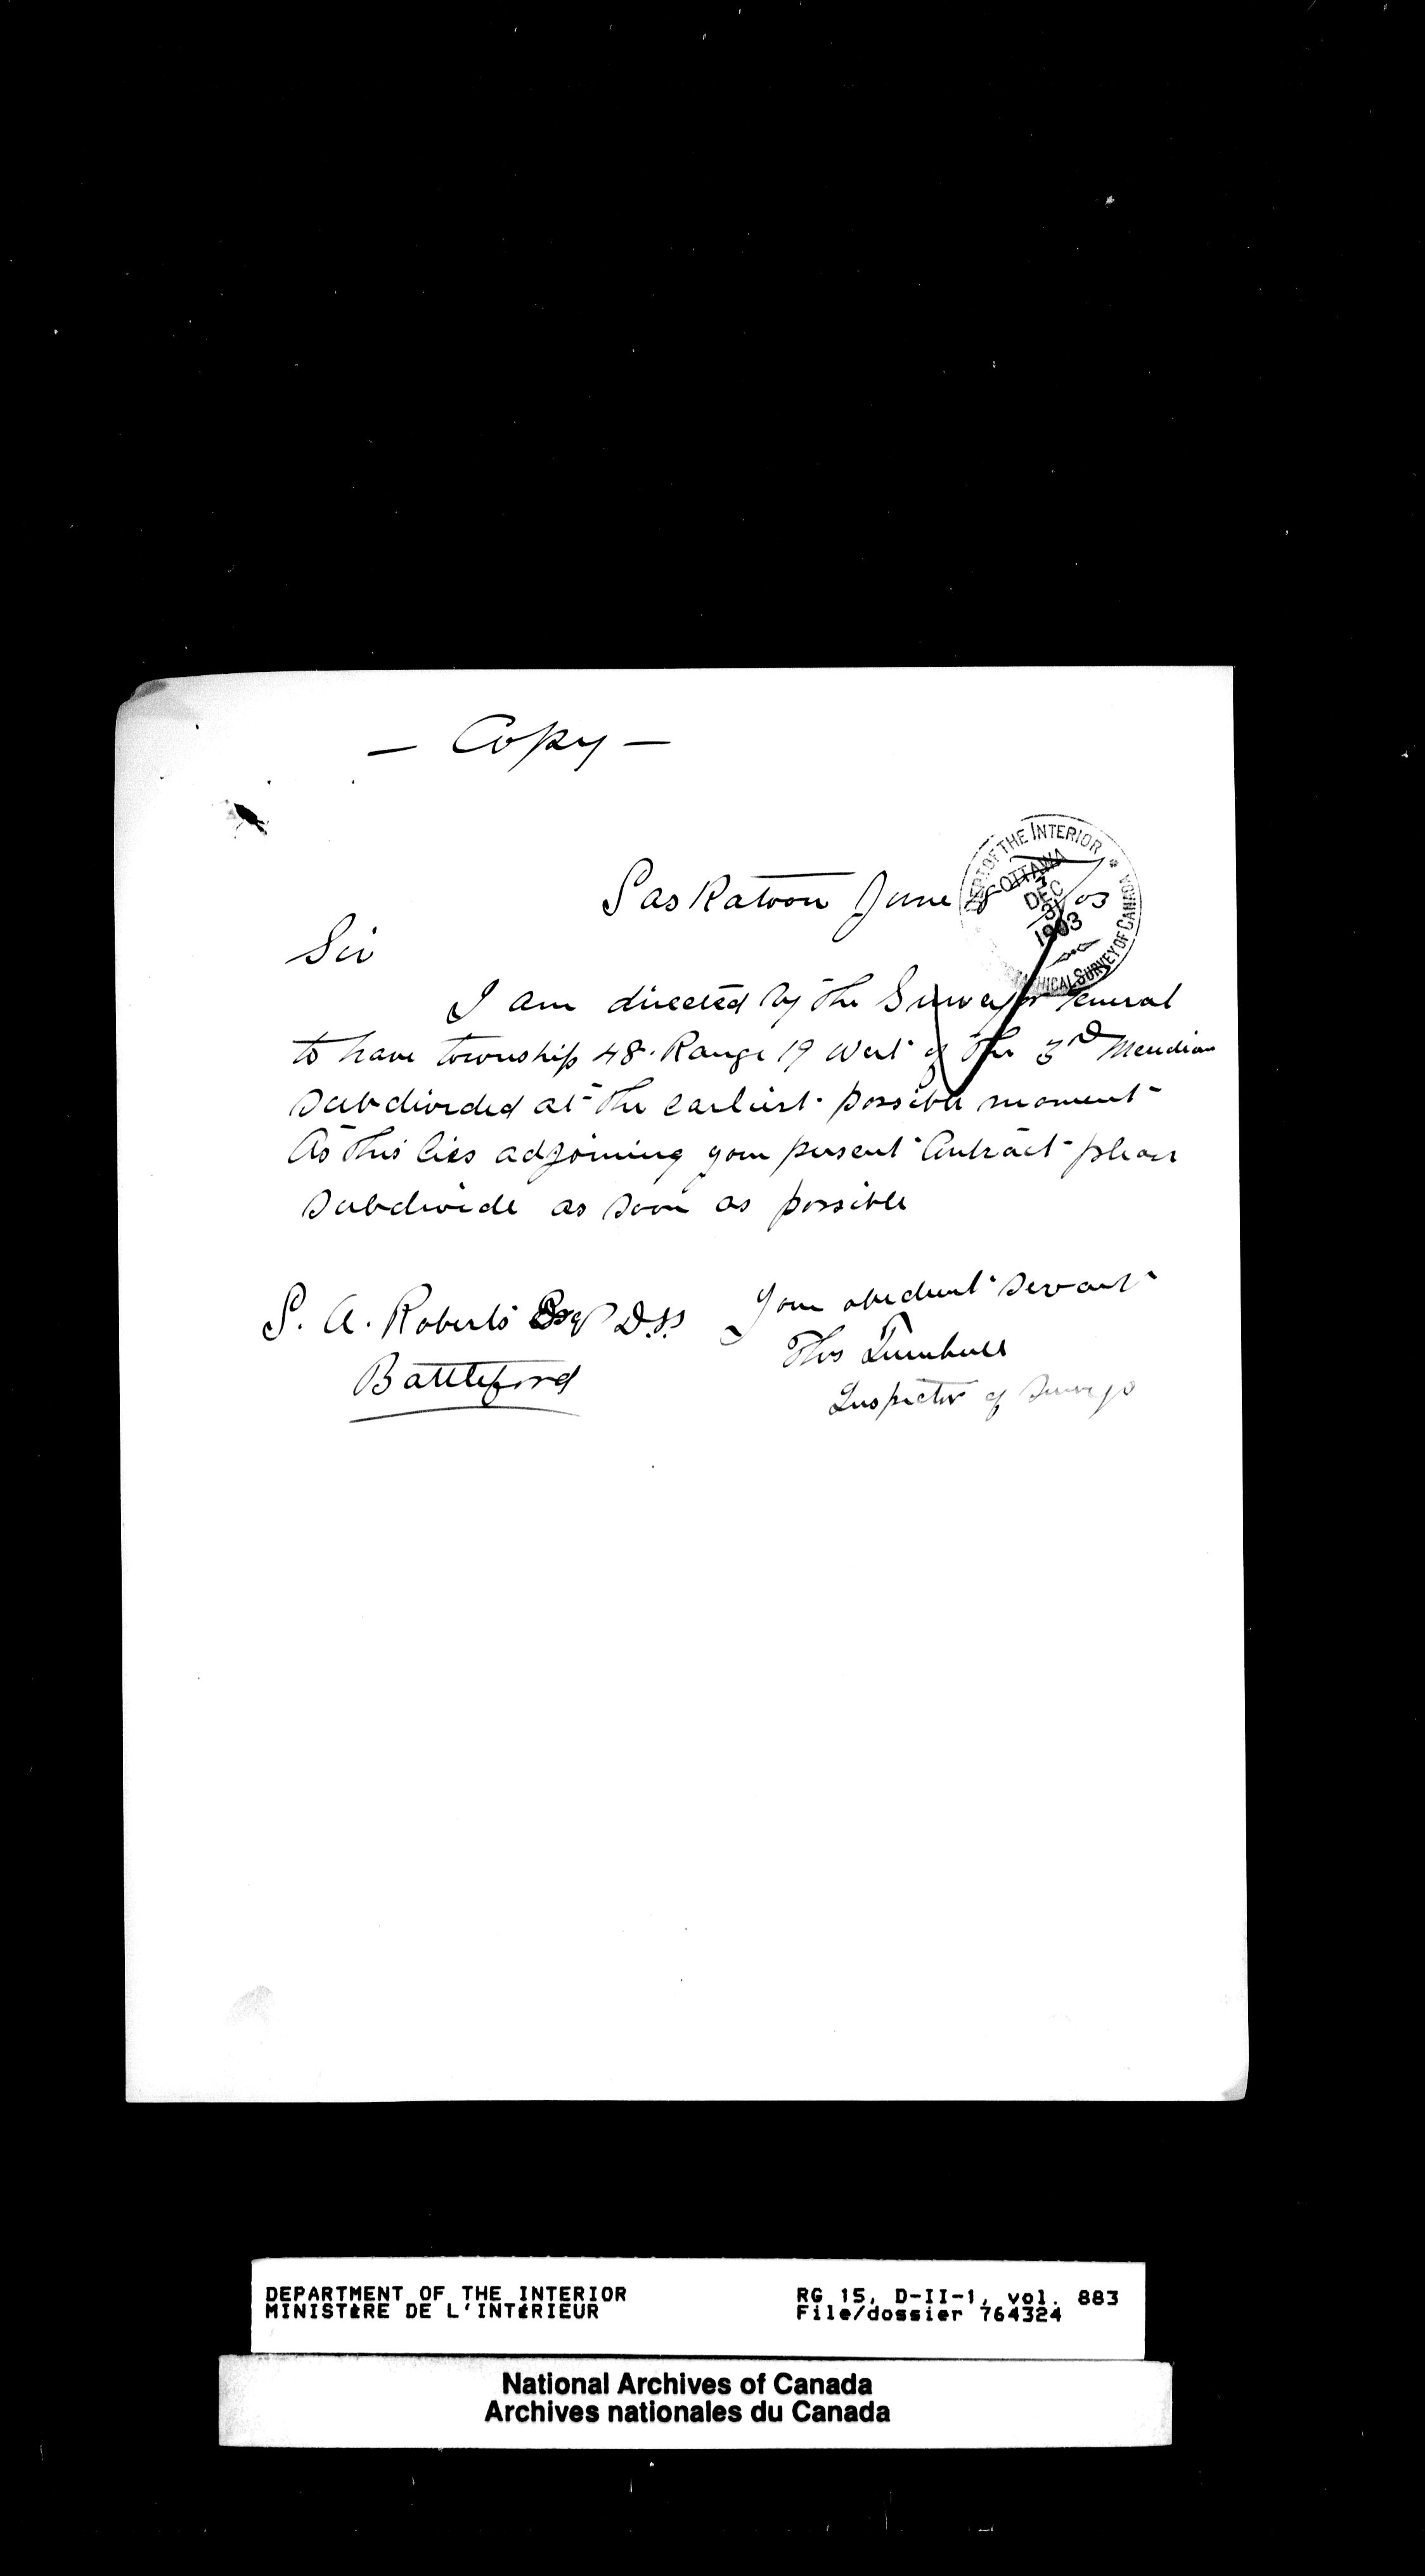 — Copy —
Saskatoon June 8 /03
DEPT OF THE INTERIOR
OTTAWA
DEC
31
1903
SURVEY OF CANADA
Sir
I am directed by the Surveyor General
to have township 48. Range 19 West of the 3rd Meridian
subdivided at the earliest possible moment
As this lies adjoining your present Contract please
subdivide as soon as possible
Your obedient servant
S. A. Roberts Esq D.L.S
Thos Turnbull
Battleford
Inspector of Surveys
DEPARTMENT OF THE INTERIOR RG 15, D-II-1, vol. 883
MINISTÈRE DE L'INTÉRIEUR File/dossier 764324
National Archives of Canada
Archives nationales du Canada